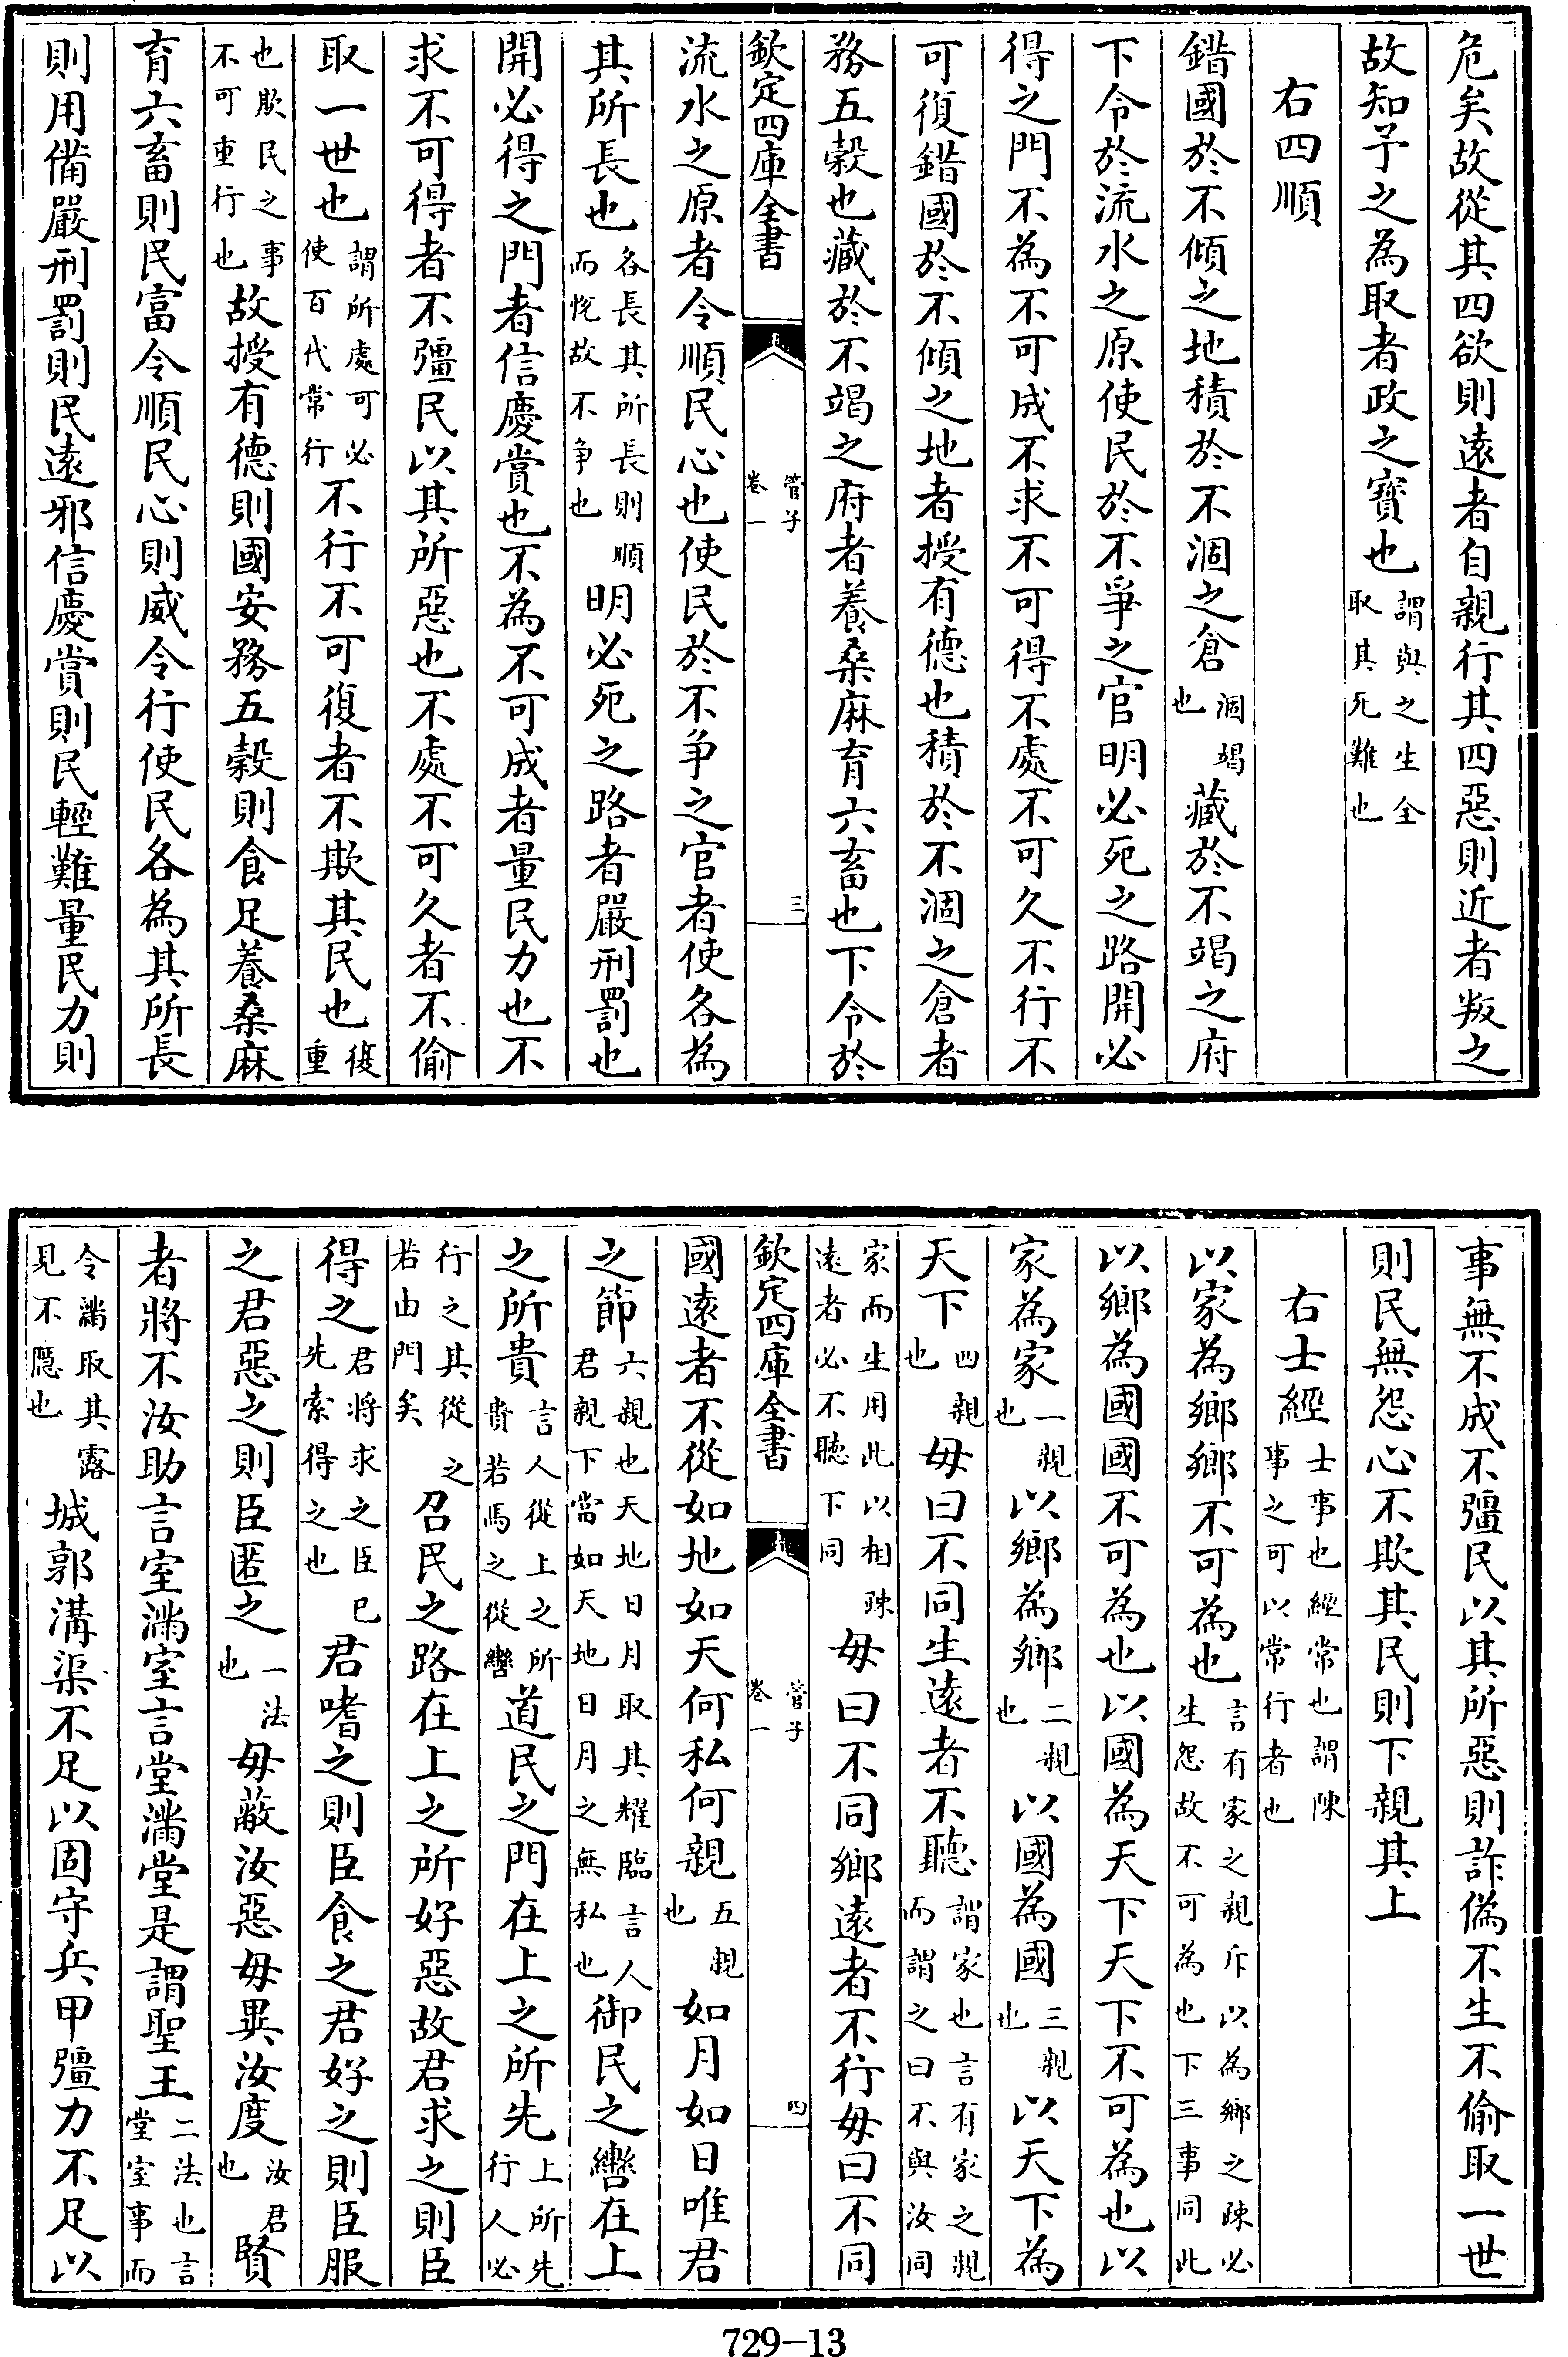 危矣故從其四欲則遠者自親行其四惡則近者叛之
故知予之為取者政之寳也謂與之生全取其死難也
右四順
錯國於不傾之地積於不涸之倉涸竭也藏於不竭之府
下令於流水之原使民於不爭之官明必死之路開必
得之門不為不可成不求不可得不處不可久不行不
可復錯國於不傾之地者授有德也積於不涸之倉者
務五穀也藏於不竭之府者養桑麻育六畜也下令於
欽定四庫全書 管子卷一 三
流水之原者令順民心也使民於不争之官者使各為
其所長也各長其所長則順而恱故不争也明必死之路者嚴刑罰也
開必得之門者信慶賞也不為不可成者量民力也不
求不可得者不彊民以其所惡也不處不可久者不偷
取一世也謂所處可必使百代常行不行不可復者不欺其民也復重
也欺民之事不可重行也故授有德則國安務五穀則食足養桑麻
育六畜則民富令順民心則威令行使民各為其所長
則用備嚴刑罰則民遠邪信慶賞則民輕難量民力則
事無不成不彊民以其所惡則詐偽不生不偷取一世
則民無怨心不欺其民則下親其上
右士經士事也經常也謂陳事之可以常行者也
以家為鄉鄉不可為也言有家之親斥以為鄉之疎必生怨故不可為也下三事同此
以鄉為國國不可為也以國為天下天下不可為也以
家為家一親也以鄉為鄉二親也以國為國三親也以天下為
天下四親也毋曰不同生遠者不聽謂家也言有家之親而謂之曰不與汝同
家而生用此以相疎遠者必不聽下同毋曰不同鄉遠者不行毋曰不同
欽定四庫全書 管子卷一 四
國遠者不從如地如天何私何親五親也如月如日唯君
之節六親也天地日月取其耀臨言人君親下當如天地日月之無私也御民之轡在上
之所貴言人從上之所貴若馬之從轡道民之門在上之所先上所先行人必
行之其從之若由門矣召民之路在上之所好惡故君求之則臣
得之君將求之臣已先索得之也君嗜之則臣食之君好之則臣服
之君惡之則臣匿之一法也毋蔽汝惡毋異汝度汝君也賢
者將不汝助言室滿室言堂滿堂是謂聖王二法也言堂室事而
令滿取其露見不隱也城郭溝渠不足以固守兵甲彊力不足以
729-13